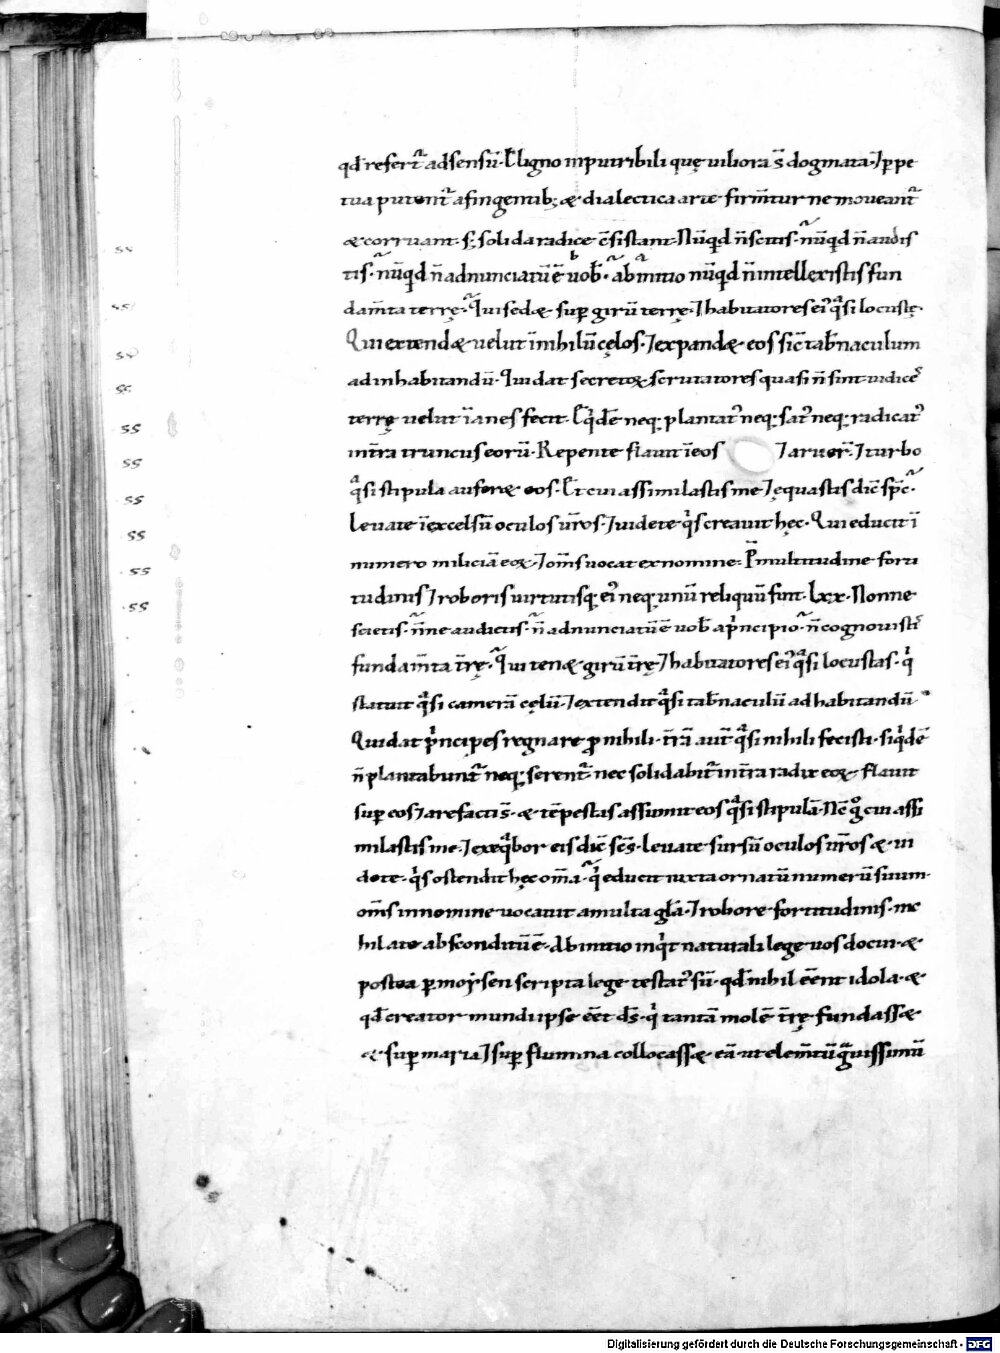 qd̄ refert᷑ ad sensū. Ul̄ ligno inputribili quę uiliora s̄ dogmata. ⁊ ꝑpe
tua putent᷑ a fingentib; & dialectica arte firm̄tur ne moveant᷑
& corruant. s; solida radice c̄sistant. Nūqd n̄ scitis. nūqd n̄ audis
tis. nūqd n̄ adnunciatū ē uob̄. ab initio nūqd n̄ intellexistis fun
dam̄ta terrę. Qui sed& sup girū terrę. ⁊ habitatores ei᷒ qͣsi locustę.
Qui extend& uelut ī nihilū cęlos. ⁊ expand& eos sic̄ tab̄naculum
ad inhabitandū. Qui dat secretoꝝ scrutatores quasi n̄ sint. iudice᷒
terrę uelut īanes fecit. Et qͥdē neq; plantat᷒ neq; sat᷒ neq; radicat᷒
in tr̄a truncus eorū. Repente flauit ī eos ⁊ aruer̄. ⁊ turbo
qͣsi stipula aufer& eos. Et cui assimilastis me ⁊ equastis dic̄ sp̄c.
Leuate ī excelsū oculos ur̄os. ⁊ uidete qͥs creauit hęc. Qui educit ī
numero miliciā eoꝝ. ⁊ om̄s uocat ex nomine. P̄ multitudine forti
tudinis ⁊ roboris uirtutisq; ei᷒ neq; unū reliquū fuit. lxx. Nonne
scietis. n̄ne audietis. n̄ adnunciatū ē uob̄ a pͥncipio. n̄ cognouisti᷒
fundam̄ta tr̄ę. Qui ten& girū tr̄ę. ⁊ habitatores ei᷒ qͣsi locustas. qͥ
statuit qͣsi camerā cęlū. ⁊ extendit qͣsi tab̄naculū ad habitandū.
Qui dat pͥncipes regnare ꝓ nihili. tr̄ā aut̄ qͣsi nihili fecisti. siqͥdē
n̄ plantabunt᷑ neq; serent᷑ nec solidabit᷑ in tr̄a radix eoꝝ. flauit
sup eos ⁊ arefacti s̄. & tēpestas assumit eos qͣsi stipulā. Nc̄ gͦ cui assi
milastis me. ⁊ exeqͣbor eis dic̄ sc̄s. Leuate sursū oculos ur̄os & ui
dete. qͥs ostendit hęc om̄a. qͥ educit iuxta ornatū numerū suum.
om̄s in nomine uocauit a multa gl̄a. ⁊ robore fortitudinis. nic
hil a te absconditū ē. Ab initio inqͥt naturali lege uos docui. &
postea ꝑ moysen scripta lege testat᷒ sū. qd̄ nihil eēnt idola. &
qd̄ creator mundi ipse eēt ds̄. qͥ tantā molē tr̄ę fundass&
& sup maria ⁊ sup flumina collocass& eā. ut elem̄tū gͣuissimū
Digitalisierung gefördert durch die Deutsche Forschungsgemeinschaft - DFG